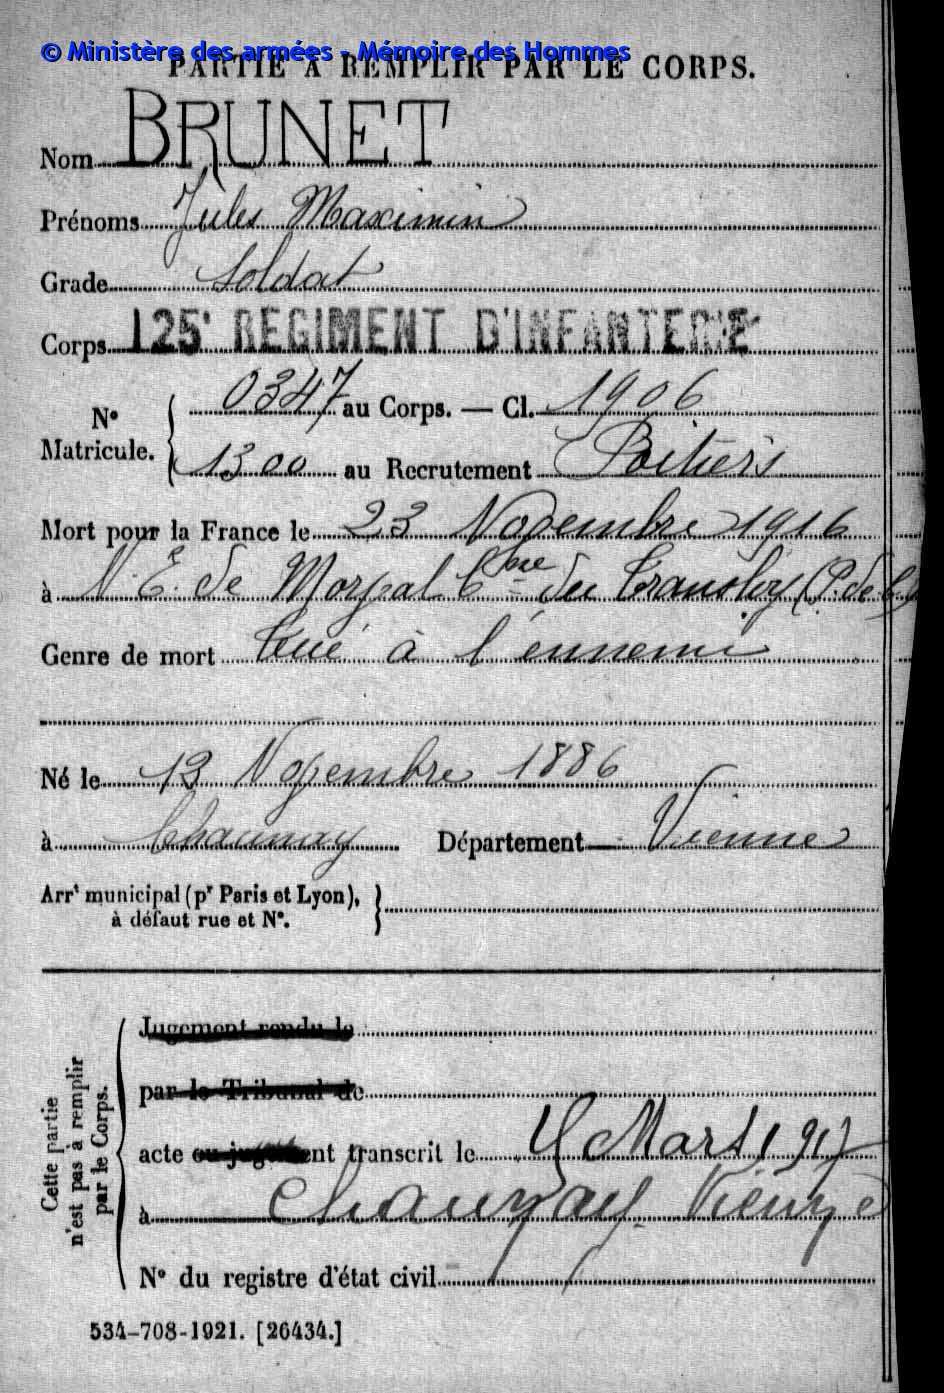 © Ministère des armées - Mémoire des Hommes
PARTIE À REMPLIR PAR LE CORPS.
Nom BRUNET
Prénoms Jules Maximin
Grade Soldat
Corps 125e RÉGIMENT D'INFANTERIE
N° Matricule. { 0347 au Corps. — Cl. 1906
1300 au Recrutement Poitiers
Mort pour la France le 23 Novembre 1916
à N. E. de Morval Cne du Transloy (P. de C)
Genre de mort Tué à l'ennemi
Né le 12 Novembre 1886
à Chaunay Département Vienne
Arrt municipal (pr Paris et Lyon),
à défaut rue et N°.
Cette partie n'est pas à remplir par le Corps.
Jugement rendu le
par le Tribunal de
acte ou jugement transcrit le 4 Mars 1917
à Chaunay Vienne
N° du registre d'état civil
534-708-1921. [26434.]